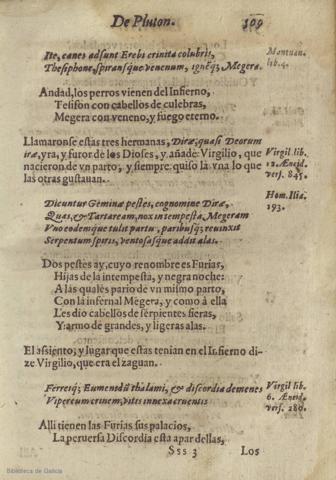 De Pluton. 309
Ite, canes adsunt Erebi crinita colubris,
Thesiphone, spiransque venenum, igneq; Megera.
Mantuan.
lib. 4.
Andad, los perros vienen del Infierno,
Tesifon con cabellos de culebras,
Megera con veneno, y fuego eterno.
Llamaronse estas tres hermanas, Diræ, quasi Deorum
iræ, yra, y furor de los Dioses, y añade Virgilio, que
nacieron de vn parto, y siempre quiso la vna lo que
las otras gustauan.
Virgil lib.
12. Æneid.
vers. 845.
Hom. Ilia.
193.
Dicuntur Geminæ pestes, cognomine Diræ,
Quas, & Tartaream, nox intempesta Megeram
Vno eodemque tulit partu, paribusq; reuinxit
Serpentum spiris, ventosasque addit alas.
Dos pestes ay, cuyo renombre es Furias,
Hijas de la intempesta, y negra noche:
A las quales pario de vn mismo parto,
Con la infernal Megera, y como à ella
Les dio cabellos de serpientes fieras,
Y armo de grandes, y ligeras alas.
El assiento, y lugar que estas tenian en el Infierno di-
ze Virgilio, que era el zaguan.
Ferreiq; Eumenidũ thalami, & discordia demenes
Vipereum crinem, vittis innexa cruentis
Virgil lib.
6. Æneid.
vers. 280.
Alli tienen las Furias sus palacios,
La peruersa Discordia esta apar dellas,
Sss 3 Los
Biblioteca de Galicia